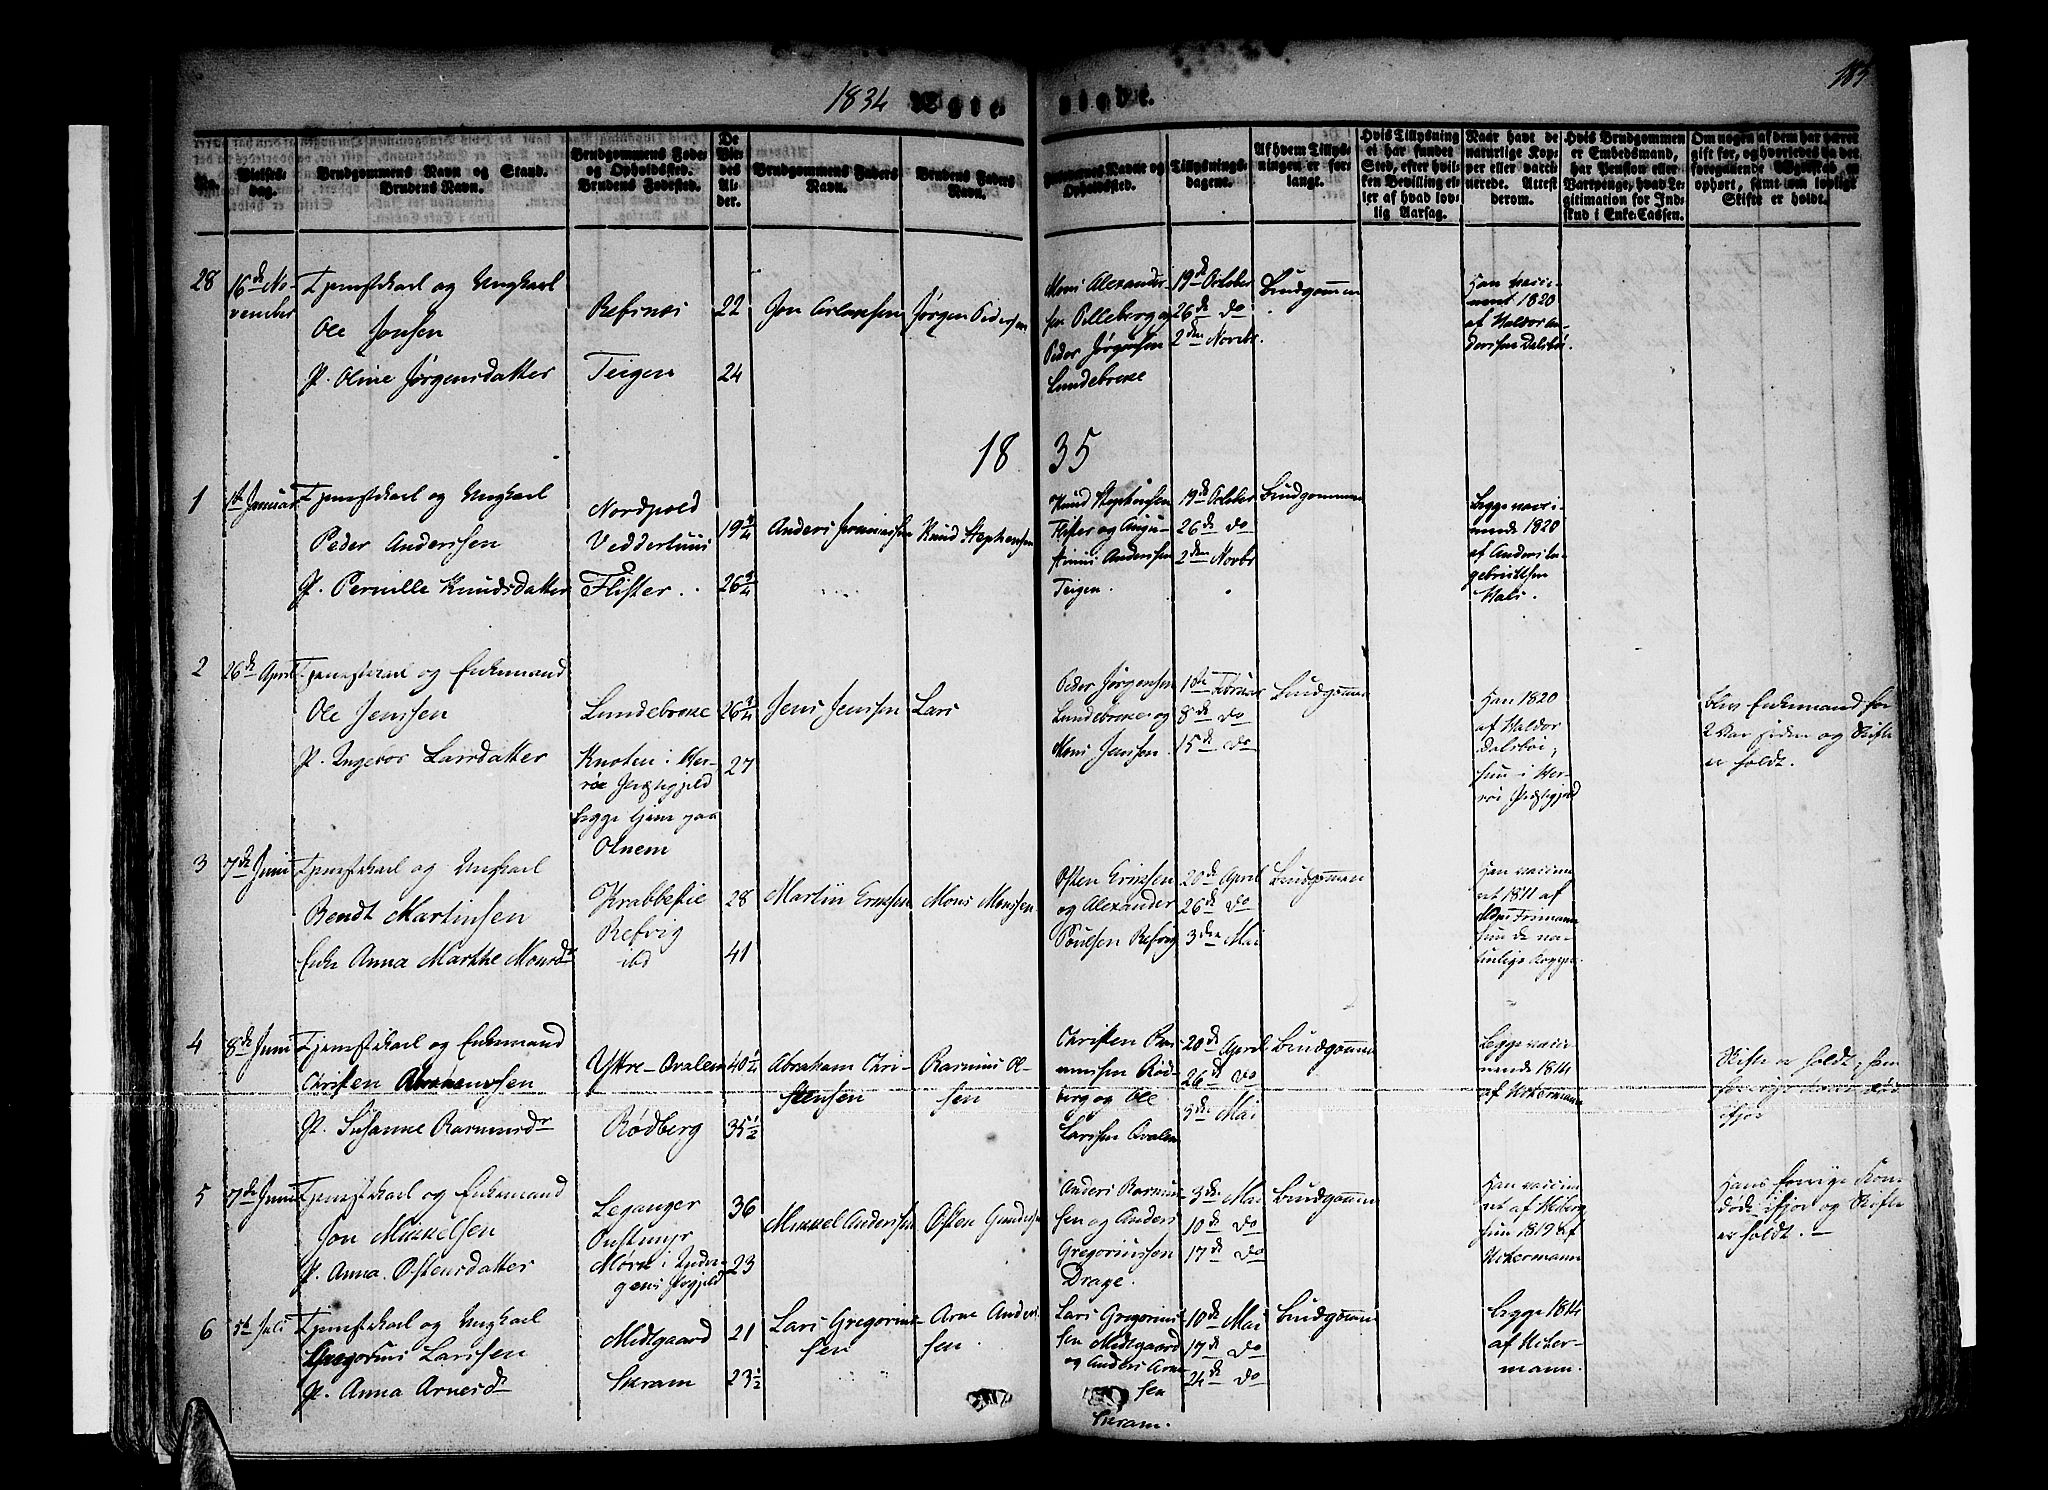 1834 Ægte
viede.
185
No.
Vielses-
dag.
Brudgommens Navn og Stand.
Brudens Navn.
Brudgommens Føde-
og Opholdssted.
Brudens Fødested.
De
Vie-
des
Al-
der.
Brudgommens Faders
Navn.
Brudens Faders
Navn.
Forlovernes Navne og
Opholdssted.
Tillysnings-
dagene.
Af hvem Tillys-
ningen er for-
langt.
Hvis Tillysning
ei har fundet
Sted, efter hvil-
ken Bevilling el-
ler af hvad lov-
lig Aarsag.
Naar havt de
naturlige Kop-
per eller vacci-
nerede. Attest
derom.
Hvis Brudgommen
er Embedsmand,
har Pension eller
Vartpenge, hvad Le-
gitimation for Ind-
skud i Enke-Cassen.
Om nogen af dem har været
gift før, og hvorledes da det
foregaaende Ægteskab er
ophørt, samt om lovligt
Skifte er holdt.
28
16de No-
vember
Tjenestekarl og Ungkarl
Ole Jonsen
P. Oline Jørgensdatter
Refsnes
Teigen
22
24
Jon
Jørgen Pedersen
Mons Alexander-
sen Pilleberg og
Peder Jørgensen
Lundebrekke
19de October
26de do
2den Novbr.
Brudgommen
Han vacci-
neret 1820
af Haldor An-
dersen Dalsbø.
18 35
1
1te Januar
Tjenestekarl og Ungkarl
Peder Andersen
P. Pernille Knudsdatter
Nordpold
Flister.
19 3/4
26 3/4
Anders
Knud Stephensen
Knud Stephensen
Flister og
Andersen
Teigen.
19de October
26de do
2den Novbr
Brudgommen
Begge vacci-
nerede 1820
af Anders In-
gebrigtsen
Hals.
2
26de April
Tjenestekarl og Enkemand
Ole Jensen
P. Ingebor Larsdatter
Lundebrekke
Knoten i Her-
røe Præstegjeld
begge tjene paa
Otnem
26 3/4
27
Jens Jensen
Lars
Peder Jørgensen
Lundebrekke og
Mons Jensen.
1ste Februar
8de do
15de do
Brudgommen
Han 1820
af Haldor
Dalsbø;
hun i Her-
røe Præstegjeld
Blev Enkemand for
2 Aar siden og Skifte
er holdt.
3
7de Juni
Tjenestekarl og Ungkarl
Bendt Martinsen
Enke Anna Marthe Monsdr
Krabbestie
Refvig
ibd
28
41
Martin Ericksen
Mons Monsen
Østen Ericksen
og Alexander
Poulsen Refvig
20de April
26de do
3die Mai
Brudgommen
Han vaccine-
ret 1811 af
Frimann
hun de na-
turlige Kopper.
4
8de Juni
Tjenestekarl og Enkemand
Christen Abrahamsen
P. Susanne Rasmusdr
Yttre-Qvalem
Rødberg
40 1/2
35 1/2
Abraham Chri-
stensen
Rasmus Ol-
sen
Christen Ras-
mussen Rød-
berg og Ole
Larsen Qvalem
20de April
26de do
3die Mai
Brudgommen
Begge vacci-
nerede 1814
af Ackermann
Skifte er holdt; hans
ifjor
5
7de Juni
Tjenestekarl og Enkemand
Jon Mikkelsen
P. Anna Østensdatter
Leganger
Mørk i Indvi-
gens Præstegjeld
36
23
Mikkel Andersen
Østen Gundersen
Anders Rasmus-
sen og Anders
Gregoriussen
Drage.
3die Mai
10de do
17de do
Brudgommen
Han vaccine-
ret af Heiberg
hun 1819 af
Ackermann
Hans forrige Kone
døde ifjor og Skifte
er holdt. —
6
5te Juli
Tjenestekarl og Ungkarl
Gregorius Larsen
P. Anna Arnesdr
Midtgaard
Skram
21
23 1/2
Lars Gregorius-
sen
Arne Anders-
sen
Lars Gregorius-
sen Midtgaard
og Anders Arne-
sen
Skram.
10de Mai
17de do
24de do
Brudgommen
begge 1814
af Acker-
mann.